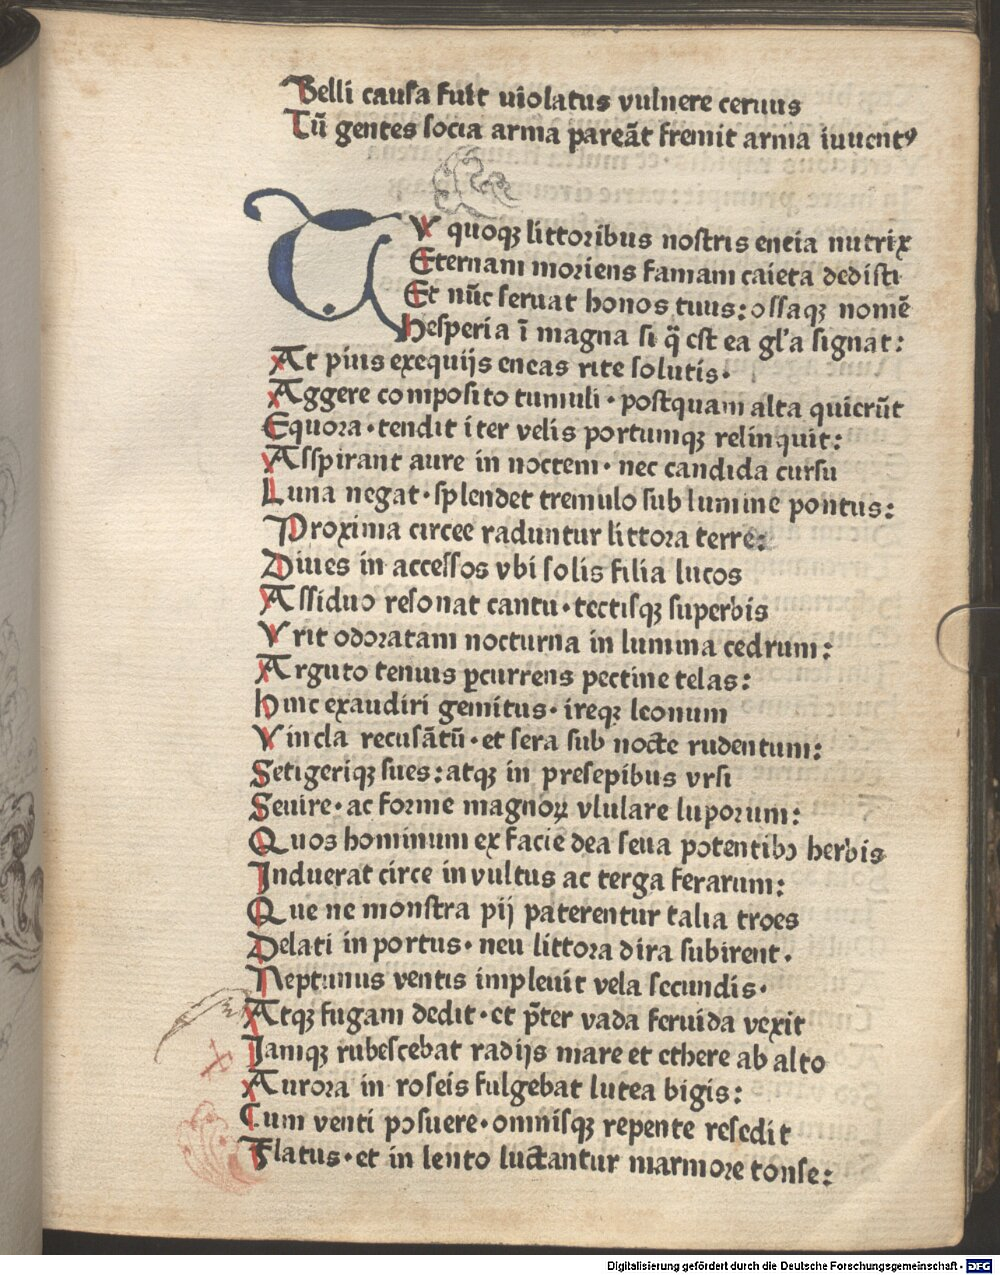 Belli causa fuit uiolatus vulnere ceruus
Tū gentes socia arma pareāt fremit arma iuuentꝰ
Tv quoqꝫ littoribus nostris eneia nutrix
Eternam moriens famam caieta dedisti
Et nūc seruat honos tuus: ossaqꝫ nomē
Hesperia ī magna si q̄ est ea gl'a signat:
At pius exequijs eneas rite solutis.
Aggere composito tumuli · postquam alta quierūt
Equora · tendit iter velis portumqꝫ relinquit:
Asspirant aure in noctem · nec candida cursu
Luna negat · splendet tremulo sub lumine pontus:
Proxima circee raduntur littora terre:
Diues in accessos vbi solis filia lucos
Assiduo resonat cantu · tectisqꝫ superbis
Vrit odoratam nocturna in lumina cedrum:
Arguto tenuis ꝑcurrens pectine telas:
Hinc exaudiri gemitus · ireqꝫ leonum
Vincla recusātū · et sera sub nocte rudentum:
Setigeriqꝫ sues: atqꝫ in presepibus vrsi
Seuire · ac forme magnoꝝ vlulare luporum:
Quos hominum ex facie dea seua potentibꝰ herbis
Induerat circe in vultus ac terga ferarum:
Que ne monstra pij paterentur talia troes
Delati in portus · neu littora dira subirent.
Neptunus ventis impleuit vela secundis ·
Atqꝫ fugam dedit · et p̄ter vada feruida vexit
Iamqꝫ rubescebat radijs mare et ethere ab alto
Aurora in roseis fulgebat lutea bigis:
Cum venti posuere · omnisqꝫ repente resedit
Flatus · et in lento luctantur marmore tonse:
Digitalisierung gefördert durch die Deutsche Forschungsgemeinschaft - DFG